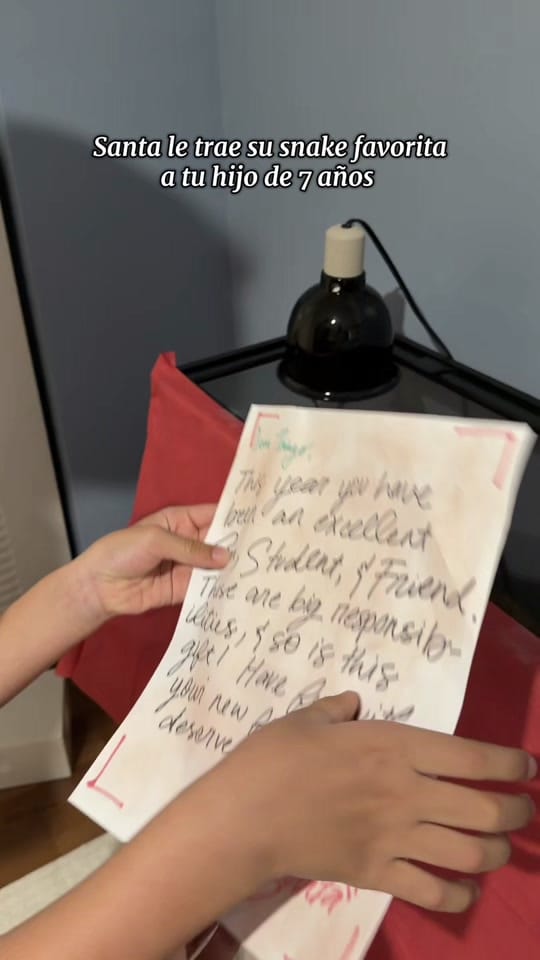 Santa le trae su snake favorita
a tu hijo de 7 años
This year you have
been an excellent
Student, & Friend.
These are big responsib-
ilities, & so is this
gift! Have
your new
deserve